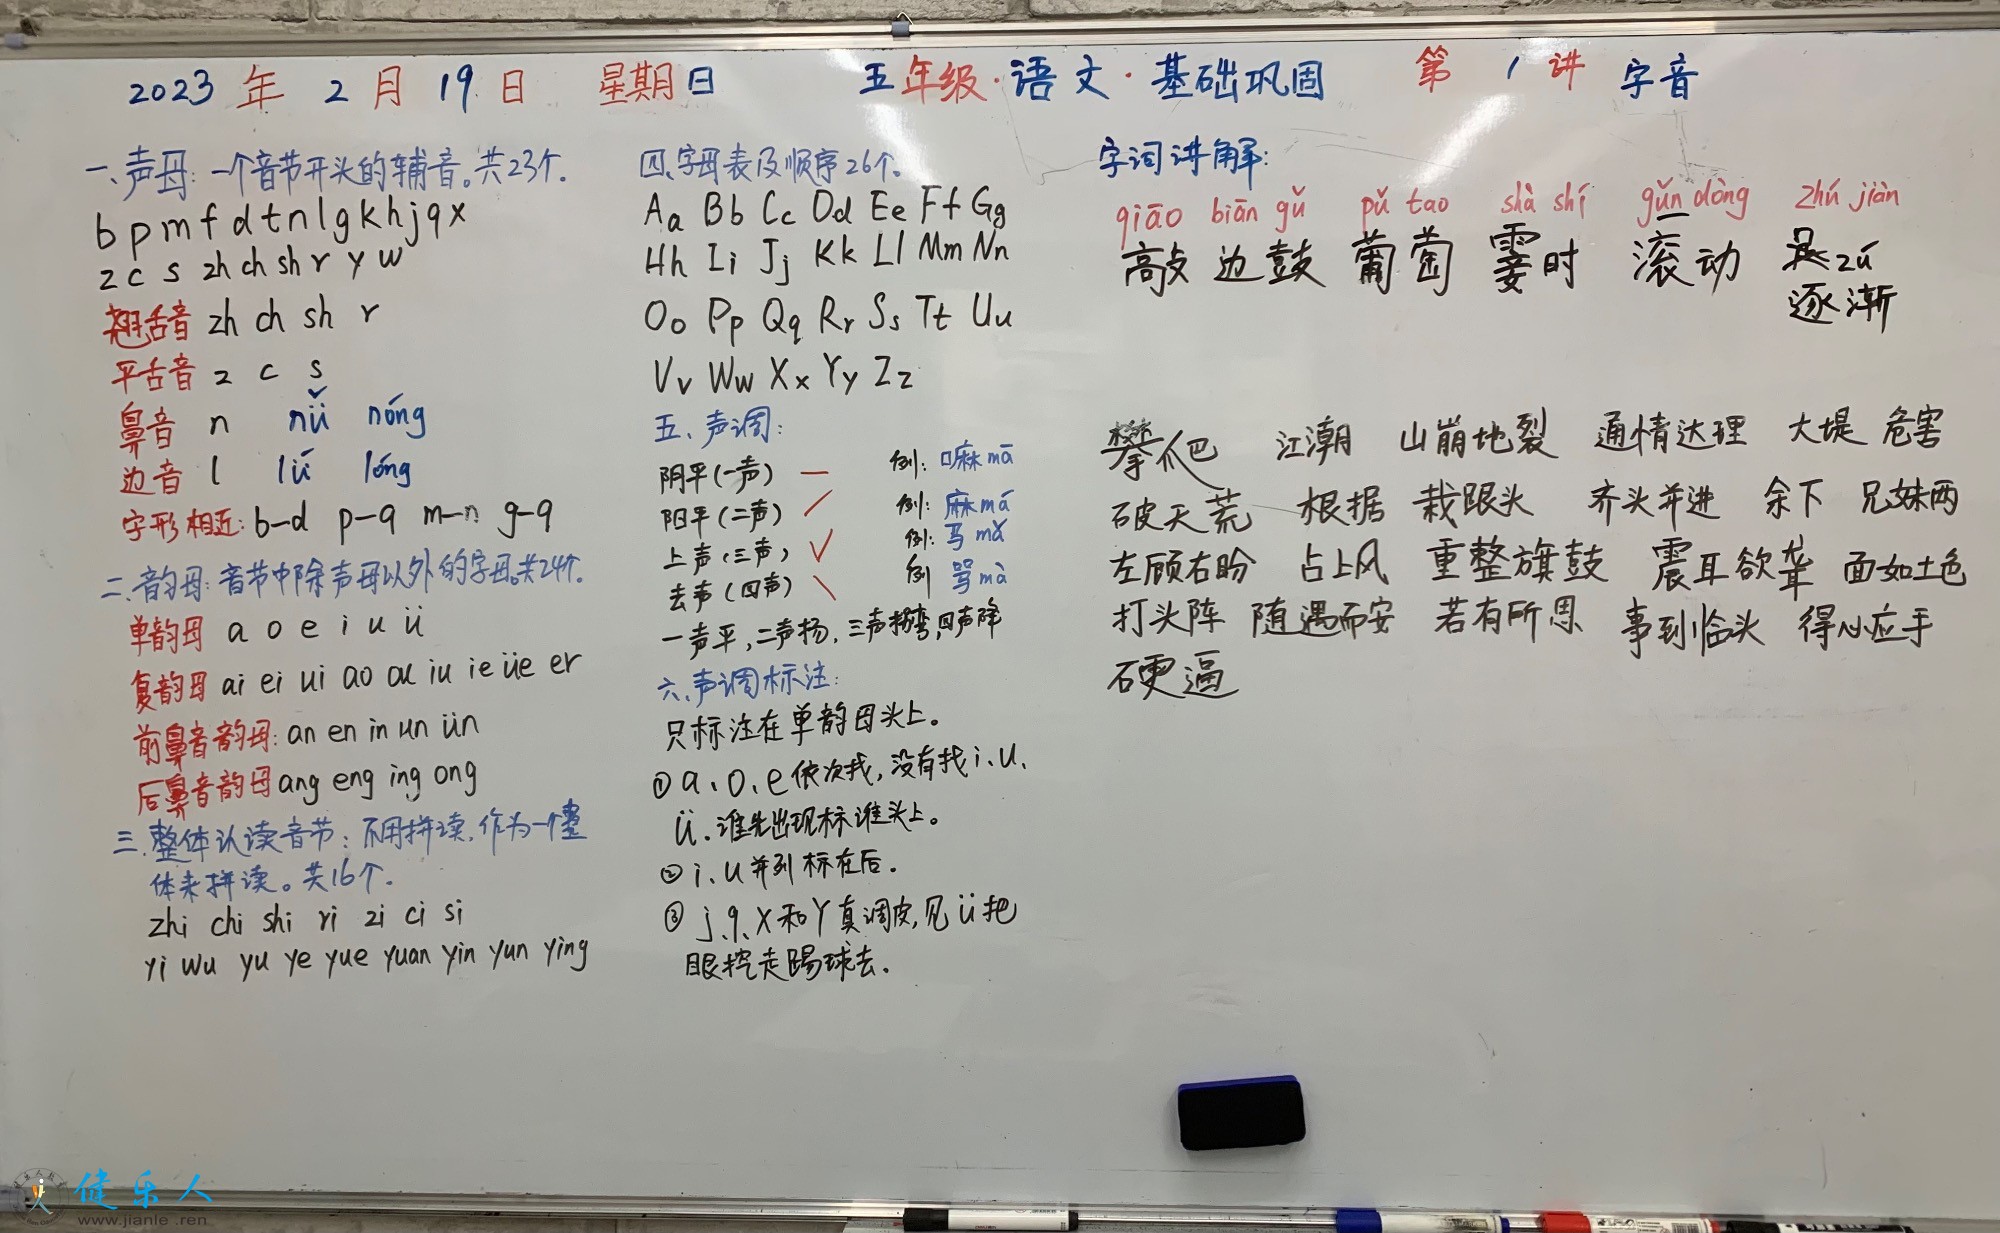 2023年2月19日 星期日 五年级·语文·基础巩固 第1讲 字音
一、声母:一个音节开头的辅音。共23个.
b p m f d t n l g k h j q x
z c s zh ch sh r y w
翘舌音 zh ch sh r
平舌音 z c s
鼻音 n nǚ nóng
边音 l lú lóng
字形相近:b-d p-q m-n g-q
二、韵母:音节中除声母以外的字母。共24个.
单韵母 a o e i u ü
复韵母 ai ei ui ao ou iu ie üe er
前鼻音韵母:an en in un ün
后鼻音韵母 ang eng ing ong
三、整体认读音节:不用拼读.作为一个整
体来拼读。共16个.
zhi chi shi ri zi ci si
yi wu yu ye yue yuan yin yun ying
四、字母表及顺序26个.
Aa Bb Cc Dd Ee Ff Gg
Hh Ii Jj Kk Ll Mm Nn
Oo Pp Qq Rr Ss Tt Uu
Vv Ww Xx Yy Zz
五、声调:
阴平(一声) — 例:嘛mā
阳平(二声) ╱ 例:麻má
上声(三声) √ 例:马mǎ
去声(四声) ╲ 例 骂mà
一声平,二声扬,三声拐弯,四声降
六、声调标注:
只标注在单韵母头上。
①a、o、e依次找,没有找i、u、
ü.谁先出现标谁头上。
②i、u并列标在后.
③j、q、x和y真调皮,见ü把
眼挖走踢球去.
字词讲解:
qiāo biān gǔ pú tao shà shí gǔn dòng zhú jiàn
敲 边鼓 葡萄 霎时 滚动 zú
逐渐
攀爬 江潮 山崩地裂 通情达理 大堤 危害
破天荒 根据 栽跟头 齐头并进 余下 兄妹两
左顾右盼 占上风 重整旗鼓 震耳欲聋 面如土色
打头阵 随遇而安 若有所思 事到临头 得心应手
硬逼
健乐人
www.jianle.ren